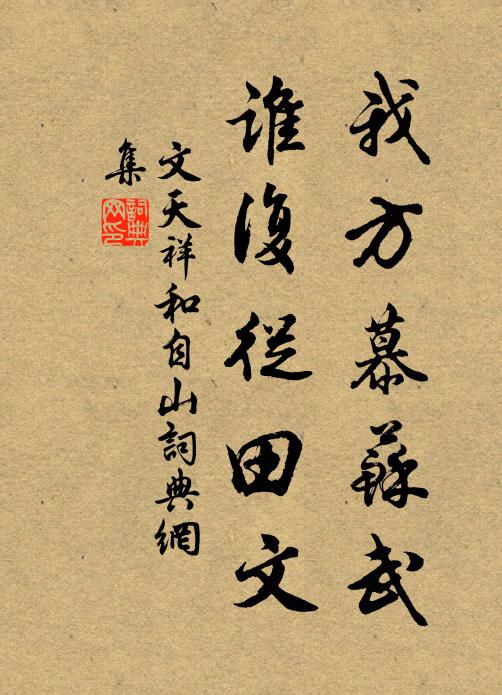 我方慕蘇武
誰復從田文
文天祥和自山詞典網
集
詞典
网印